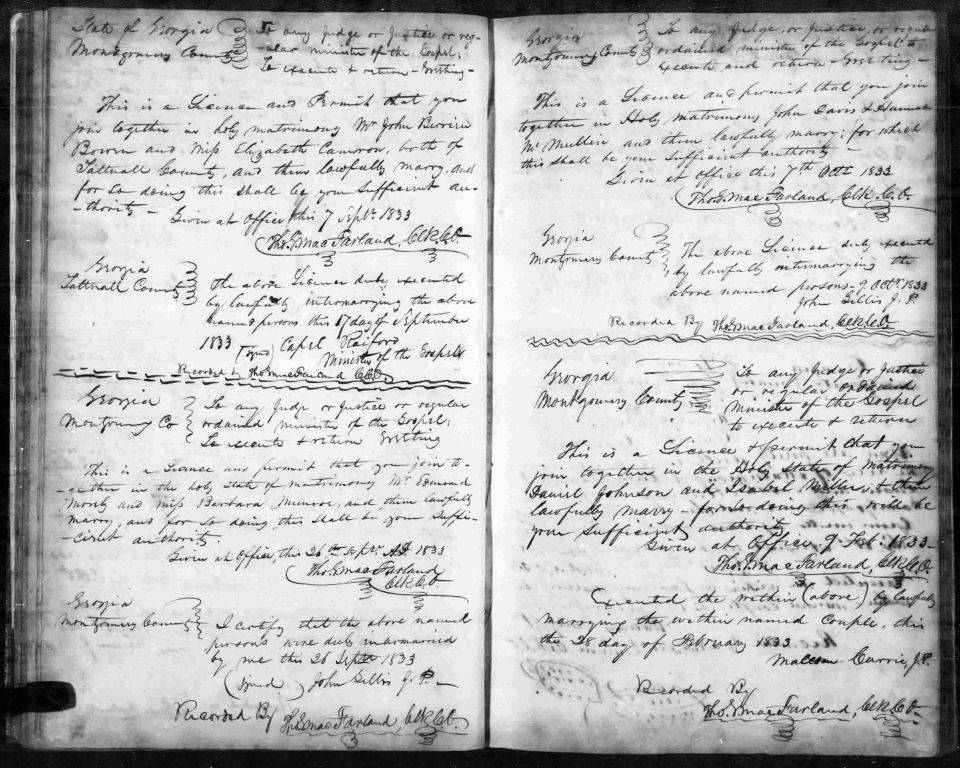 State of Georgia
Montgomery County
To any Judge or Justice or reg-
-ular minister of the Gospel;
To execute & return - Greeting -
This is a Licence and Permit that you
join together in holy matrimony Mr John
Bowen and Miss Elizabeth Cameron, both of
Tattnall County, and them lawfully marry, and
for so doing this shall be your Sufficient au-
-thority - Given at Office this 7 Septr 1833
Tho. G. MacFarland, Clk. C.O.
Georgia
Tattnall County
The above Licence duly executed
by lawfully intermarrying the above
named persons this 17 day of September
1833 (Signed) Capel Raiford
Minister of the Gospel
Recorded by Tho. G. MacFarland C.C.O.
Georgia
Montgomery Co
To any Judge or Justice or regular
ordained minister of the Gospel;
To execute & return Greeting
This is a Licence and permit that you join to-
-gether in the holy State of matrimony Mr
and Miss Barbara Munroe, and them lawfully
marry, and for so doing this shall be your Suffi-
-cient authority.
Given at Office, this 26th Septr A.D. 1833
Tho. G. MacFarland
Clk C.O.
Georgia
Montgomery County
I certify that the above named
persons were duly intermarried
by me this 26 Septr 1833
(Signed) John Gillis J.P. -
Recorded By Tho. G. MacFarland, Clk C.O.
Georgia
Montgomery County
To any Judge, or Justice, or regular
ordained minister of the Gospel to
execute and return - Greeting -
This is a Licence and permit that you join
together in Holy matrimony, John Davis & Hannah
McMullin and them lawfully marry; for which
this shall be your Sufficient authority -
Given at office this 7th Octr 1833
Tho. G. MacFarland, Clk. C.O.
Georgia
Montgomery County
The above Licence duly executed
by lawfully intermarrying the
above named persons - 9 Octr 1833
John Gillis J.P.
Recorded By Tho. G. MacFarland, Clk C.O.
Georgia
Montgomery County
To any Judge or Justice
or regular ordained
Minister of the Gospel
to execute & return
This is a Licence & permit that you
join together in the Holy State of Matrimony
Daniel Johnson and Isabel Miller, & them
lawfully marry - for so doing this will be
your Sufficient authority
Given at Office 9 Feb. 1833 -
Tho. G. MacFarland, Clk C.O.
Executed the within (above) by lawfully
marrying the within named Couple, this
the 28 day of February 1833
Malcom Currie, J.P.
Recorded By
Tho. G. MacFarland, Clk C.O.